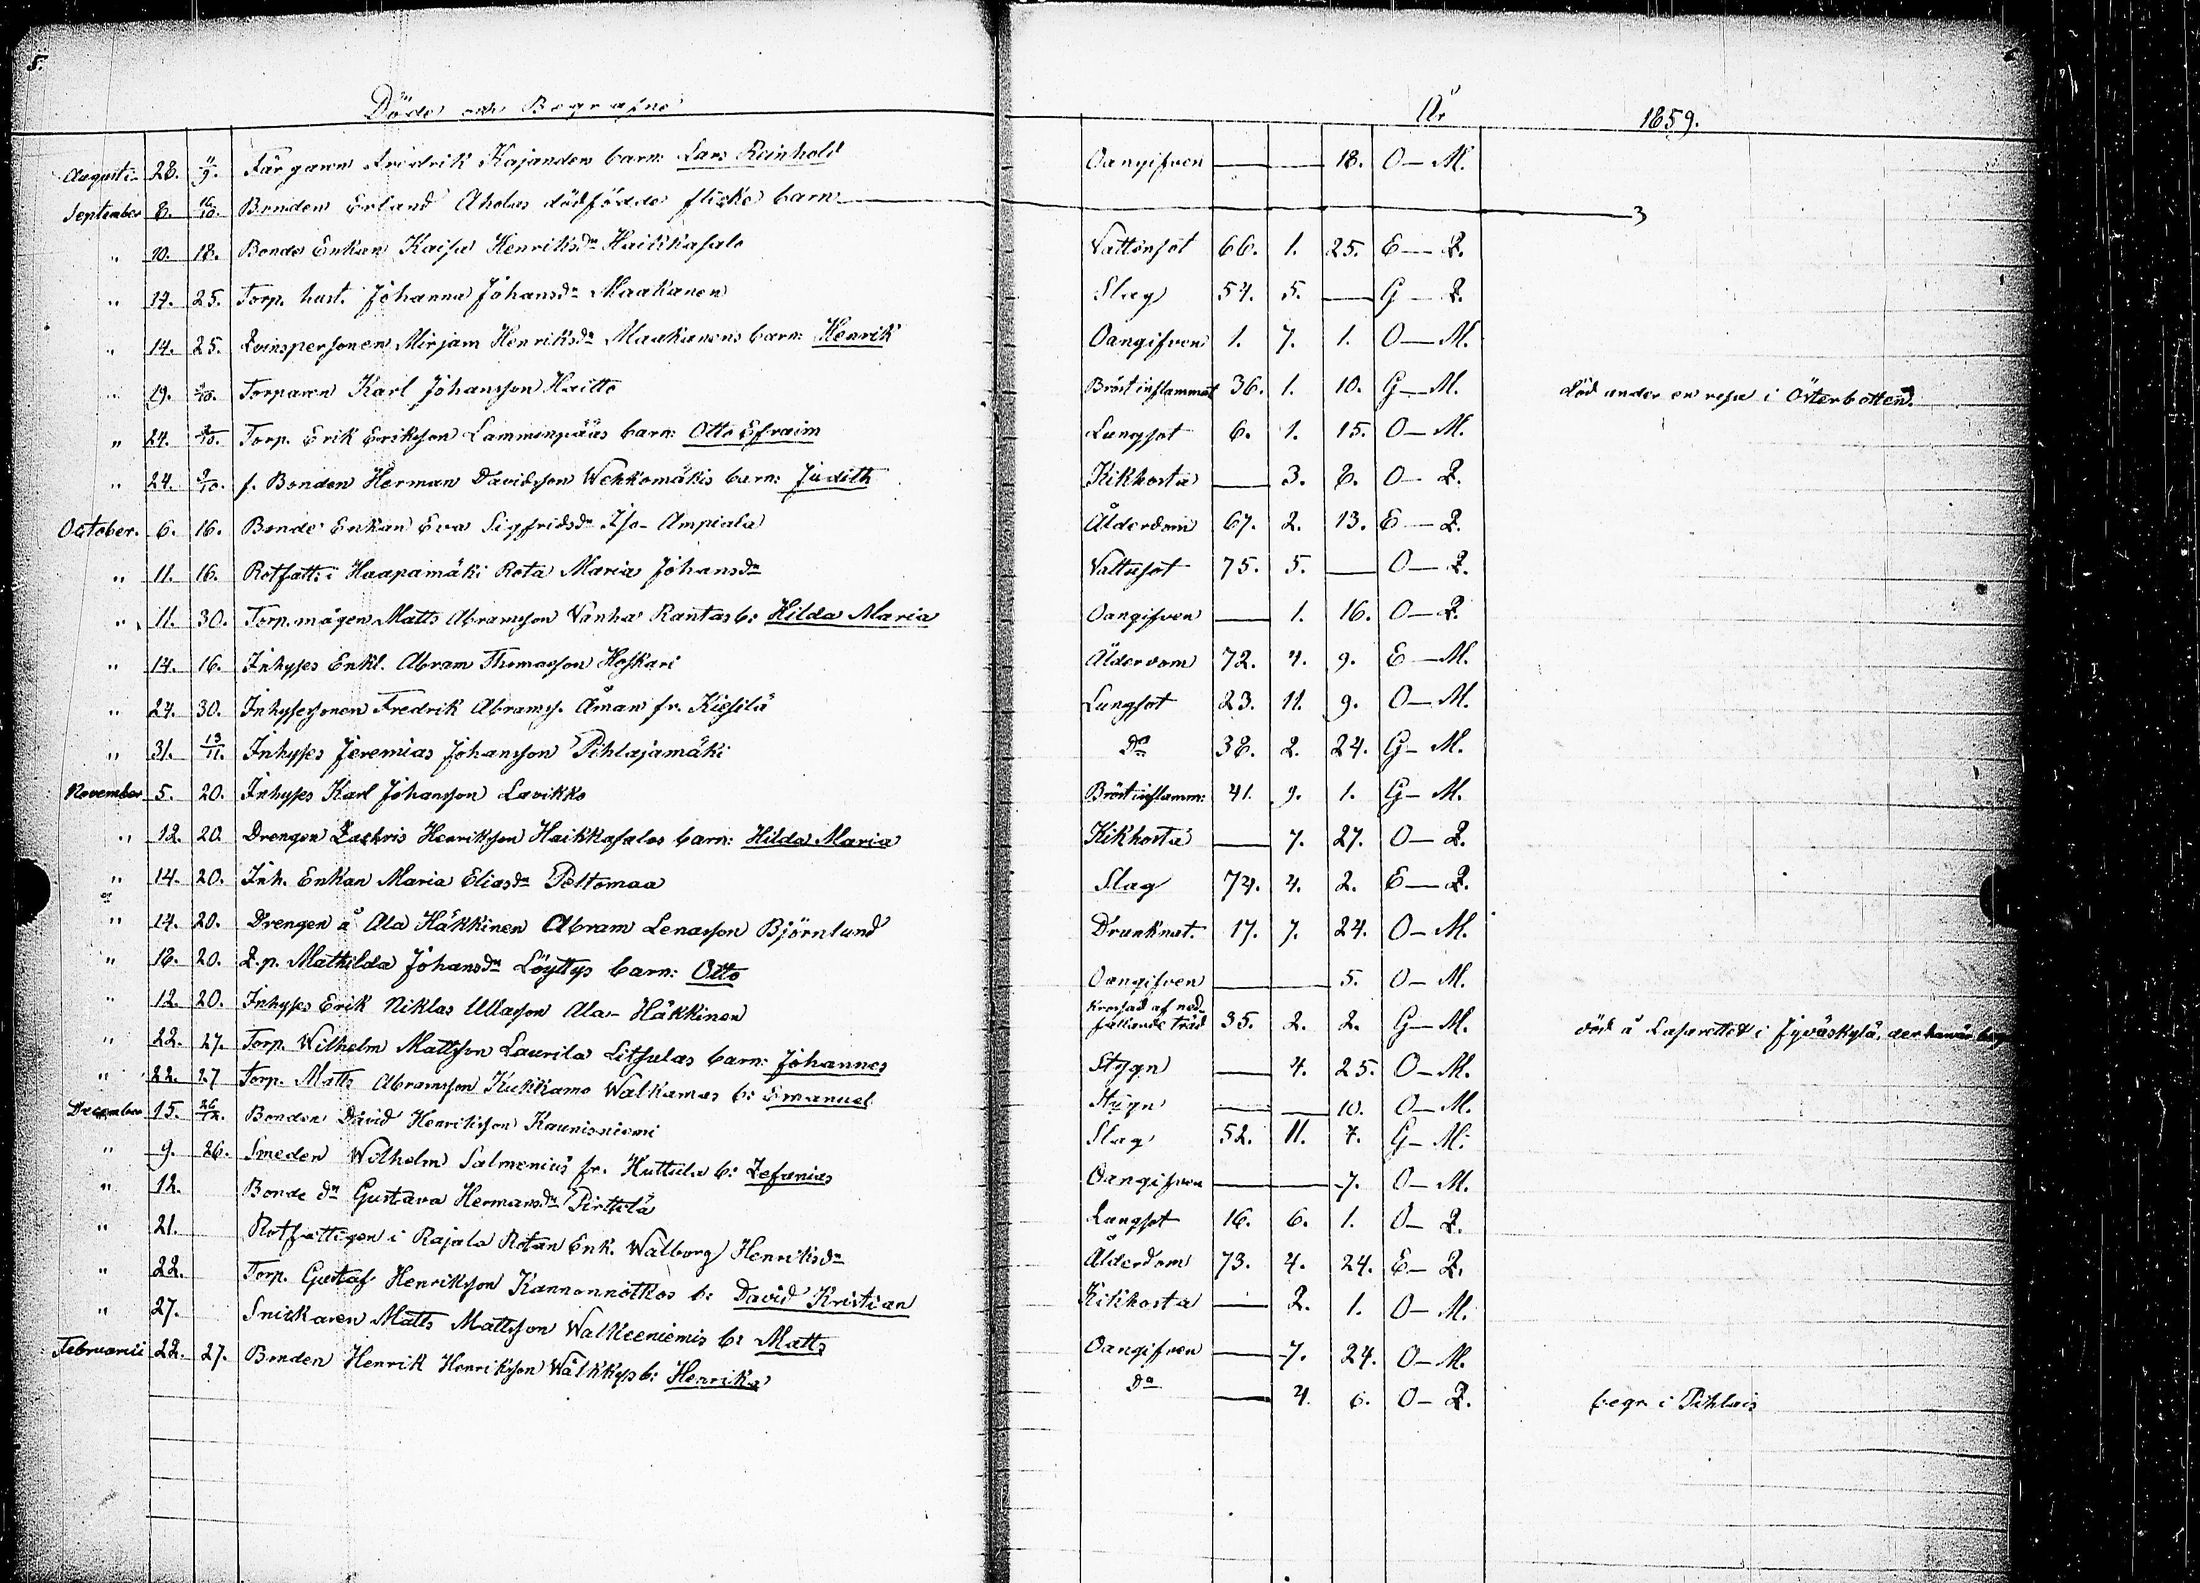 5.
Döde och Begrafne År 1859.
Augusti 28. 11/9. Färgaren Fredrik Kajanders barn: Lars Reinhold Oangifven — — 18. O — M.
September 8. 16/10. Bonden Erland Aholas dödfödde flicke barn
" 10. 18. Bonde Enkan Kaisa Henriksdr Haikkasalo Vattensot 66. 1. 25. E — Q.
" 14. 25. Torp. hust. Johanna Johansdr Maakanen Slag 54. 5. — G — Q.
" 14. 25. Qvinspersonen Mirjam Henriksdr Maakanens barn: Henrik Oangifven 1. 7. 1. O — M.
" 19. Torparen Karl Johansson Haitto Bröst inflammat 36. 1. 10. G — M. död under en resa i Österbotten.
" 24. 9/10. Torp. Erik Eriksson Lammenpääs barn: Otto Efraim Lungsot 6. 1. 15. O — M.
" 24. 9/10. f. Bonden Herman Davidsson Wehkomäkis barn: Judith Kikhosta — 3. 8. O — Q.
October. 6. 16. Bonde Enkan Eva Sigfridsdr Iso-Ampiala Ålderdom 67. 2. 13. E — Q.
" 11. 16. Rotfatt. i Haapamäki Rota Maria Johansdr Vattusot 75. 5. — O — Q.
" 11. 30. Torp.mågen Matts Abramsson Vanha Rantas b: Hilda Maria Oangifven — 1. 16. O — Q.
" 14. 16. Inhyses Enkl. Abram Thomasson Hoskari Ålderdom 72. 4. 9. E — M.
" 24. 30. Inhysessonen Fredrik Abramss. Åman fr. Kiesilä Lungsot 23. 11. 9. O — M.
" 31. 13/11. Inhyses Jeremias Johansson Pihlajamäki Do 38. 2. 24. G — M.
November 5. 20. Inhyses Karl Johansson Lavikko Bröstinflamm: 41. 9. 1. G — M.
" 12. 20. Drengen Zachris Henriksson Haikkasalos barn: Hilda Maria Kikhosta — 7. 27. O — Q.
" 14. 20. Inh. Enkan Maria Eliasdr Peltomaa Slag 74. 4. 2. E — Q.
" 14. 20. Drengen å Ala Häkkinen Abram Lenasson Björnlund Drunknat. 17. 7. 24. O — M.
" 18. 20. Q.p. Mathilda Johansdr Löyttys barn: Otto Oangifven — — 5. O — M.
" 12. 20. Inhyses Erik Niklas Ullasson Ala-Häkkinen Krossad af ned-fallande träd 35. 2. 2. G — M. död å Lasarettet i Jyväskylä, der han är begr
" 22. 27. Torp. Wilhelm Mattsson Laurila Litsulas barn: Johannes Stygn — 4. 25. O — M.
" 22. 27 Torp. Matts Abramsson Kukkamo Walkamas b: Emanuel Stygn — — 10. O — M.
December 15. 26/12. Bonden David Henriksson Kaunisniemi Slag 52. 11. 7. G — M.
" 9. 26. Smeden Wilhelm Salmenius fr. Huttula b: Zefanias Oangifven — — 7. O — M.
" 12. Bonde dr Gustava Hermansdr Pirttilä Lungsot 16. 6. 1. O — Q.
" 21. Rotfattigen i Rajala Rotan Enk. Walborg Henriksdr Ålderdom 73. 4. 24. E — Q.
" 22. Torp. Gustaf Henriksson Kannonnotkos b: David Kristian Kikhosta — 2. 1. O — M.
" 27. Snickaren Matts Mattsson Walkeeniemis b: Matts Oangifven — 7. 24. O — M.
Februarii 22. 27. Bonden Henrik Henriksson Wälkkys b: Henrika Do — 4. 6. O — Q. begr. i Pihlais